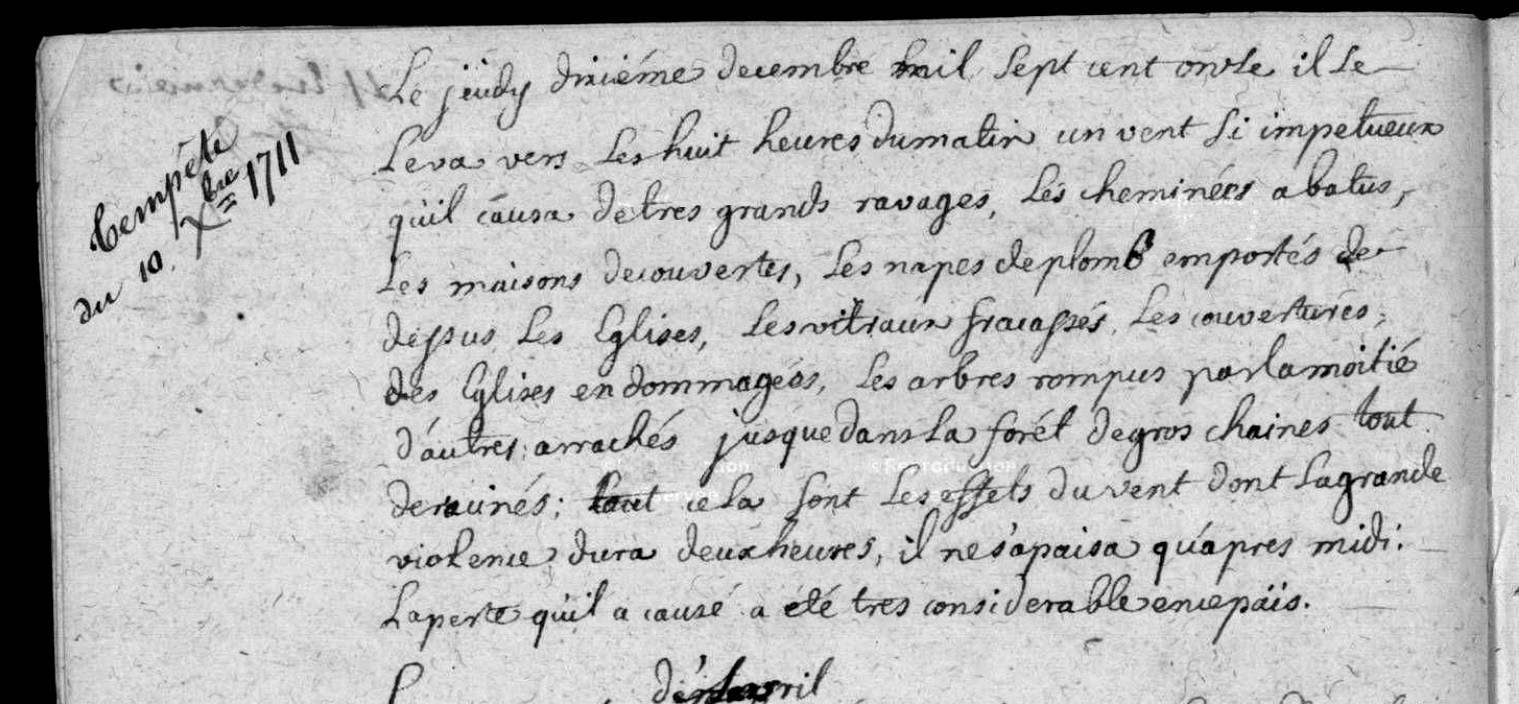 Tempête
du 10. Xbre 1711
Le jeudy dixiéme decembre mil sept cent onze il se
leva vers les huit heures du matin un vent si impetueux
qu'il causa de tres grands ravages, les cheminées abatus,
les maisons decouvertes, les napes de plomb emportés de
dessus les Eglises, les vitraux fracassés, les couvertures,
des Eglises endommagées, les arbres rompus par la moitié
d'autres arrachés jusque dans la forét de gros chaines tout
deracinés; tout cela sont les effets du vent dont la grande
violence dura deux heures, il ne s'apaisa qu'apres midi.
La perte qu'il a causé a été tres considerable en ce païs.